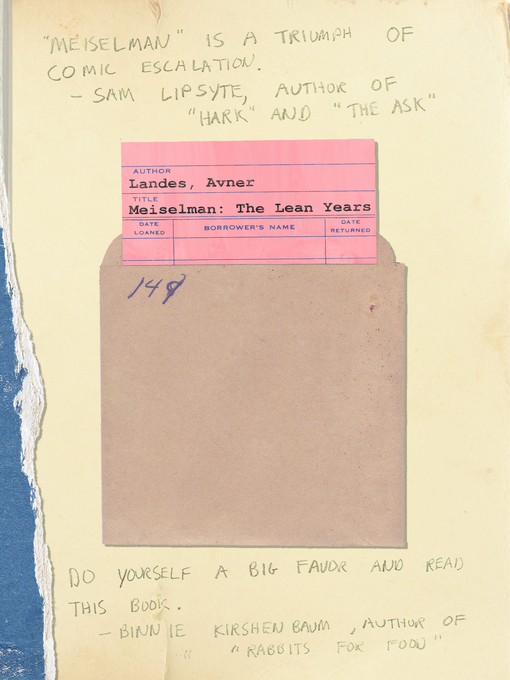 "MEISELMAN" IS A TRIUMPH OF
COMIC ESCALATION.
- SAM LIPSYTE, AUTHOR OF
"HARK" AND "THE ASK"
AUTHOR
Landes, Avner
TITLE
Meiselman: The Lean Years
DATE LOANED BORROWER'S NAME DATE RETURNED
14¢
DO YOURSELF A BIG FAVOR AND READ
THIS BOOK.
- BINNIE KIRSHENBAUM, AUTHOR OF
"RABBITS FOR FOOD"